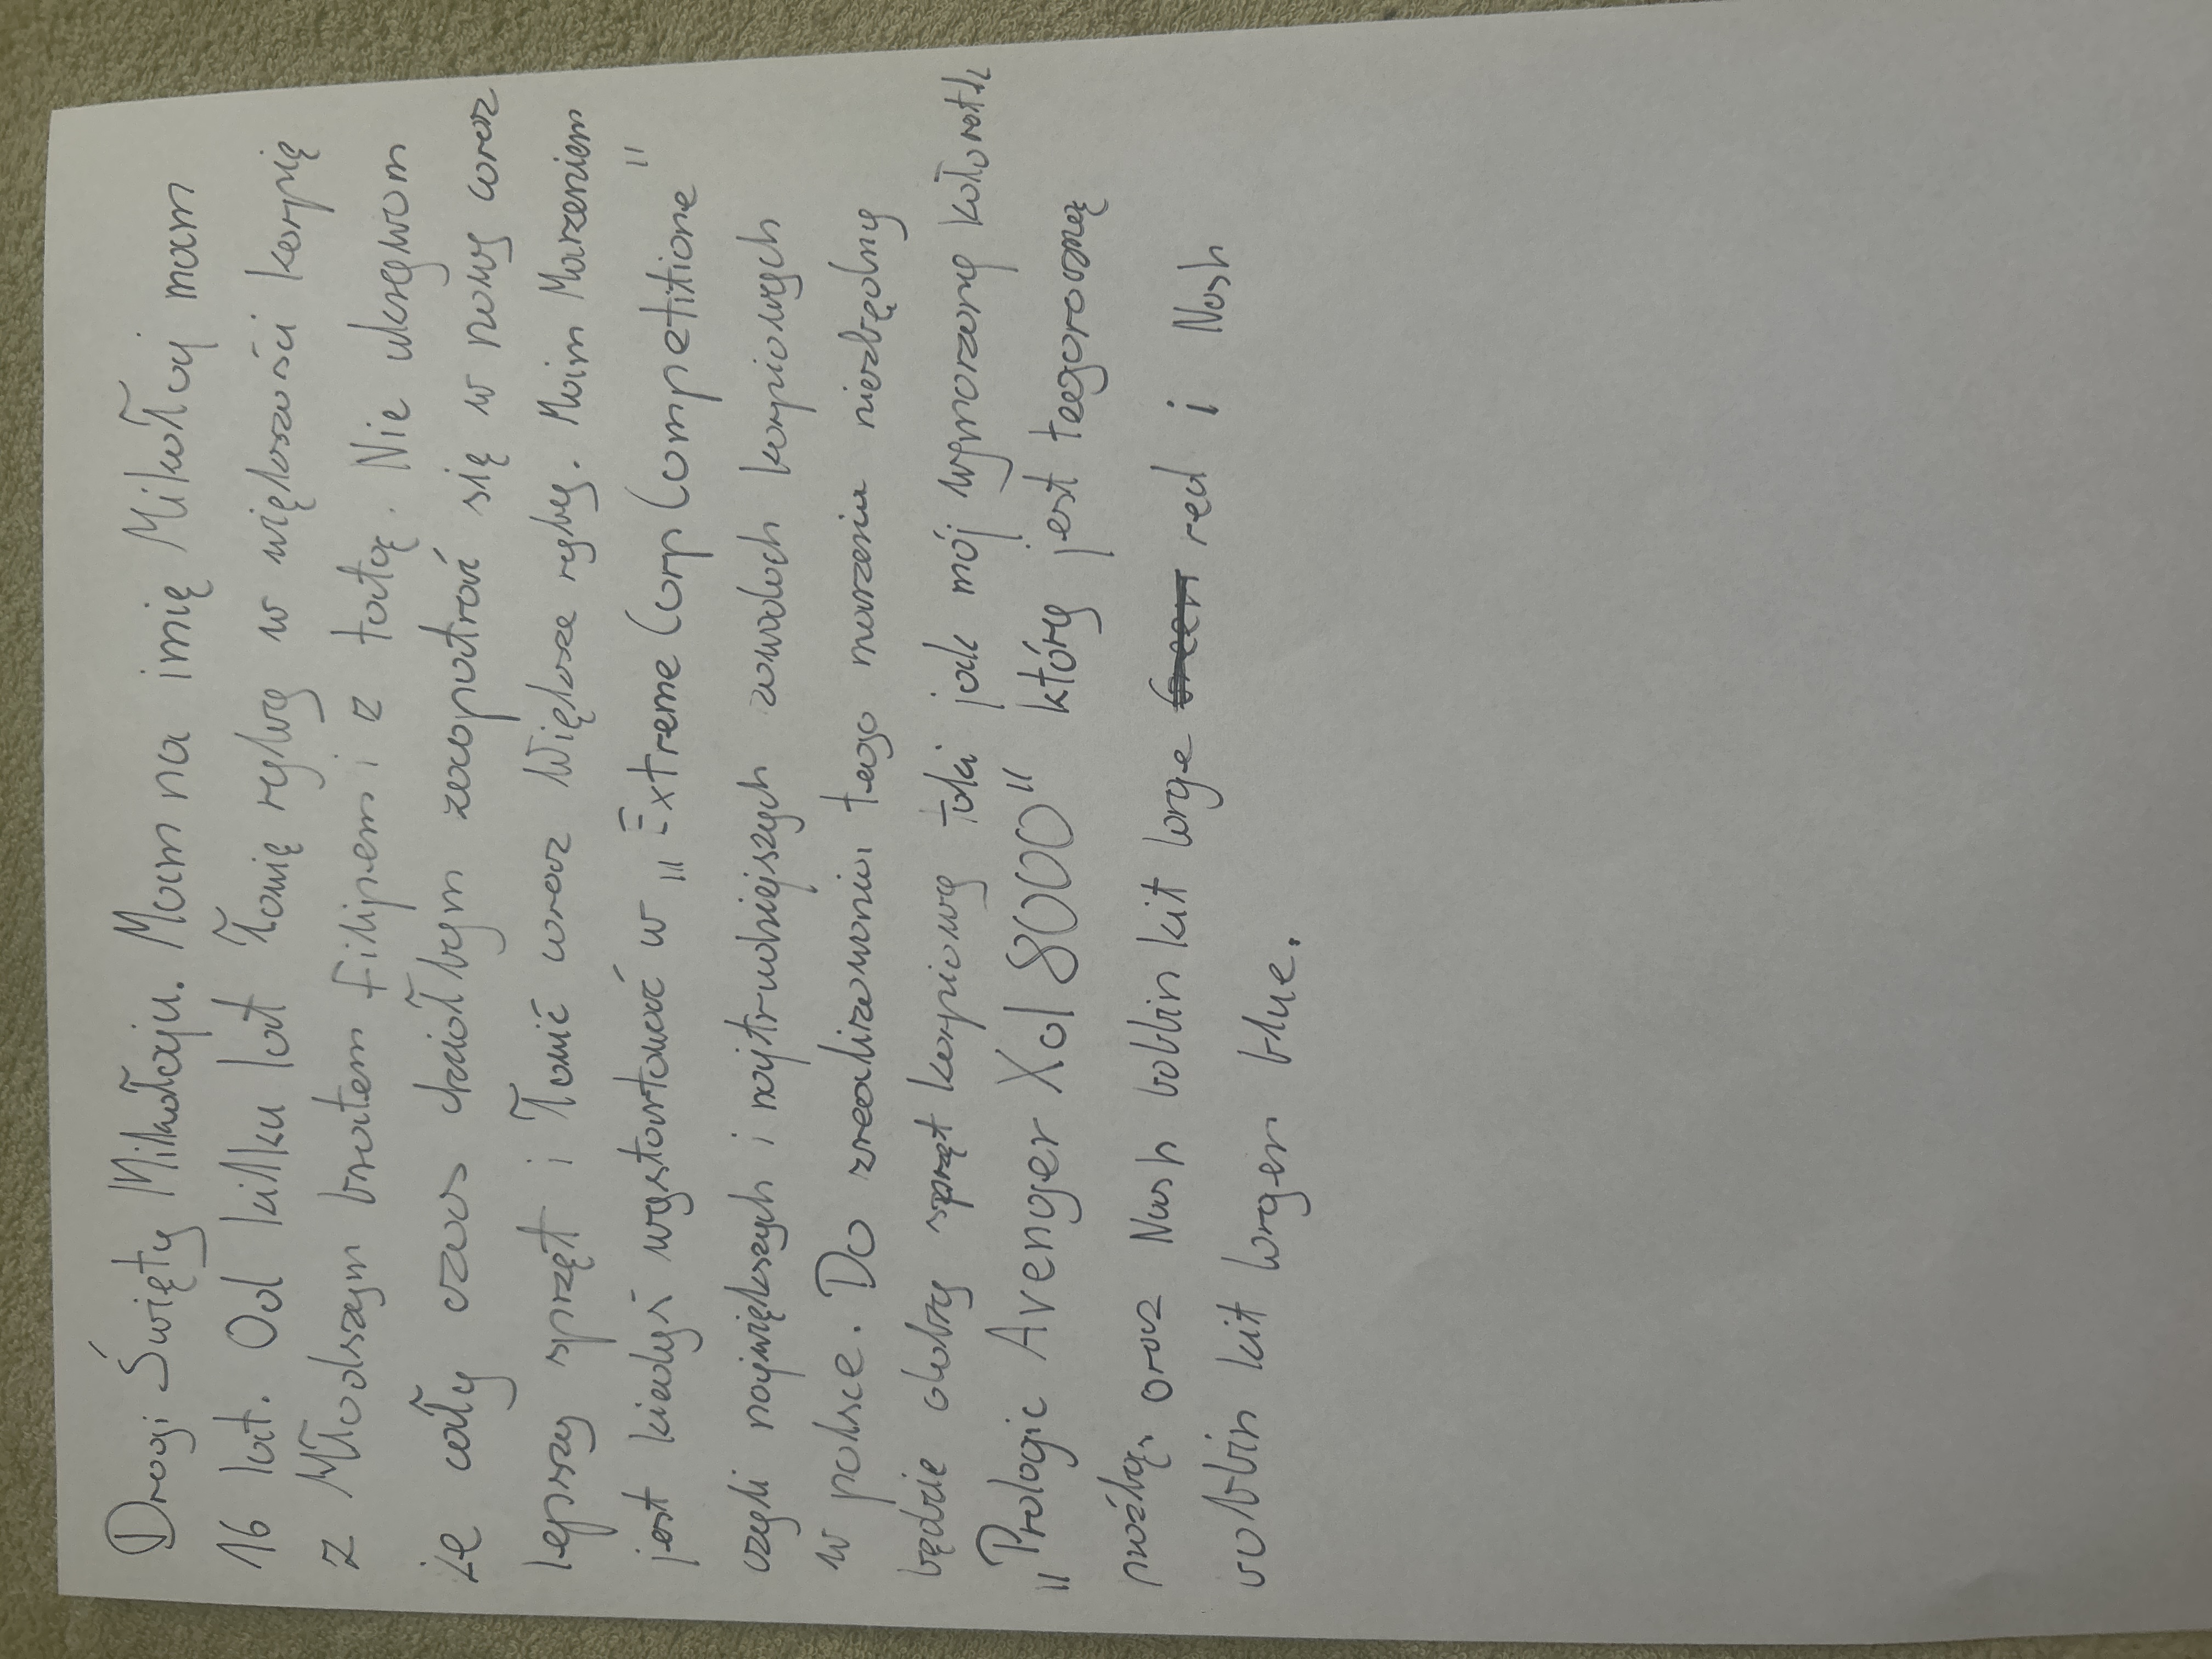 Drogi Święty Mikołaju. Mam na imię Mikołaj mam
16 lat. Od kilku lat Łowię ryby w większości karpię
z Młodszym bratem filipem i z tatą. Nie ukrywam
że cały czas chciałbym zaopatrać się w nowy coraz
lepszy sprzęt i Łowić coraz Większe ryby. Moim Marzeniem
jest kiedyś wystartować w „Extreme Carp Competitione"
czyli największych i najtrudniejszych zawodach karpiowych
w polsce. Do zrealizowania tego marzenia niezbędny
będzie dobry sprzęt karpiowy taki jak mój wymarzony kołowrotk
„Prologic Avenger Xd 8000" który jest tegoroczną
prośbą, oraz Nash bobbin kit large red i Nash
bobbin kit largen blue.